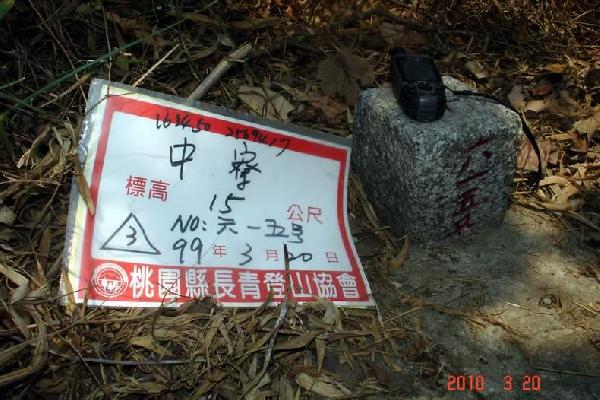 168450 2569417
中寮
標高 15 公尺
3 NO:六一五号
99年3月20日
桃園縣長青登山協會
六一五
2010 3 20